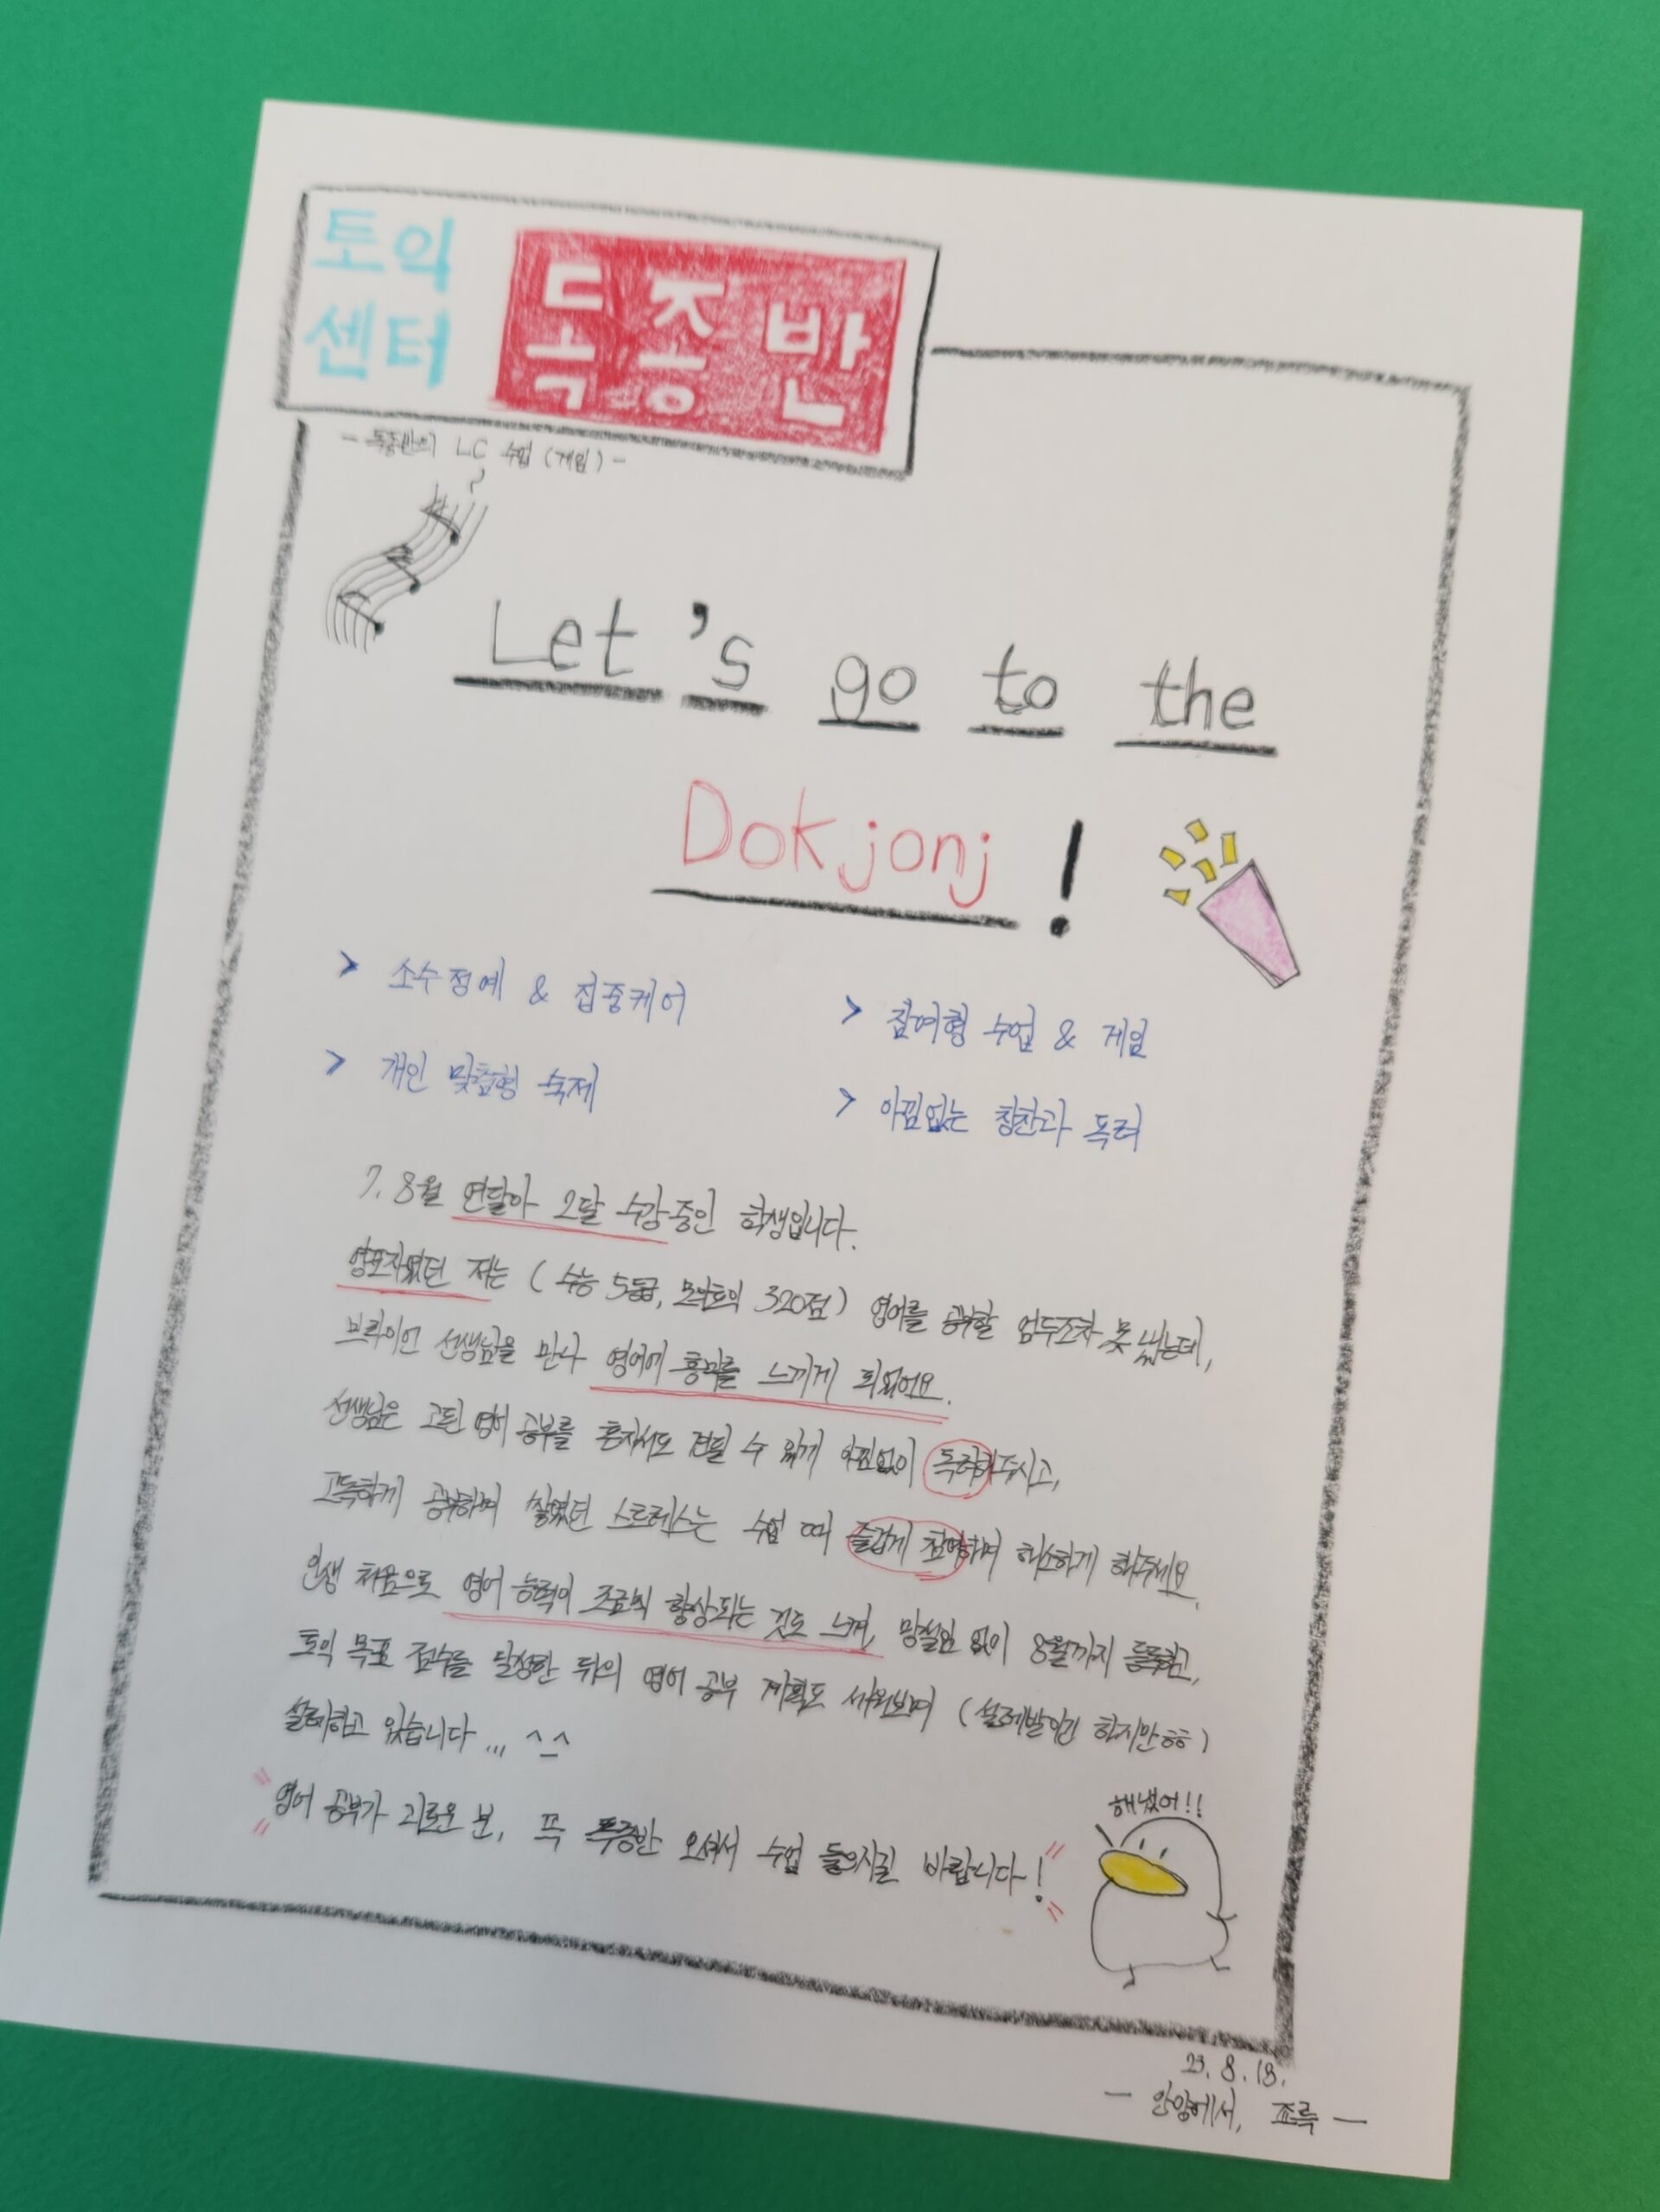 토익
센터
독종반
- 독종반의 LC 수업 (게임) -
Let's go to the
Dokjonj!
> 소수정예 & 집중케어
> 참여형 수업 & 게임
> 개인 맞춤형 숙제
> 아낌없는 칭찬과 독려
7, 8월 연달아 2달 수강중인 학생입니다.
영포자였던 저는 (수능 5등급, 모의토익 320점) 영어를 공부할 엄두조차 못 냈는데,
브라이언 선생님을 만나 영어에 흥미를 느끼게 되었어요.
선생님은 고된 영어 공부를 혼자서도 견딜 수 있게 아낌없이 독려해주시고,
고독하게 공부하며 쌓였던 스트레스는 수업 때 즐겁게 참여하며 해소하게 해주세요.
인생 처음으로 영어 능력이 조금씩 향상되는 것도 느껴, 망설임 없이 8월까지 등록했고,
토익 목표 점수를 달성한 뒤의 영어 공부 계획도 세워보며 (설레발이긴 하지만ㅎㅎ)
설레하고 있습니다... ^_^
"영어 공부가 괴로운 분, 꼭 독종반 오셔서 수업 들으시길 바랍니다!"
해냈어!!
23. 8. 18.
- 안양에서, 쪼륵 -